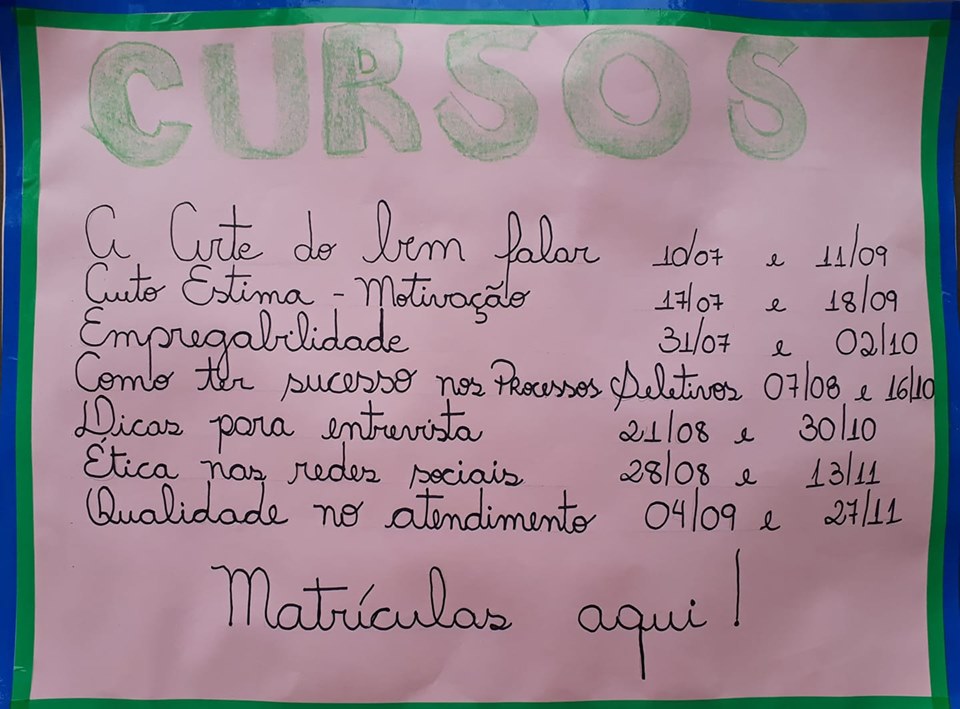 CURSOS
A Arte do bem falar 10/07 e 11/09
Auto Estima - Motivação 17/07 e 18/09
Empregabilidade 31/07 e 02/10
Como ter sucesso nos Processos Seletivos 07/08 e 16/10
Dicas para entrevista 21/08 e 30/10
Ética nas redes sociais 28/08 e 13/11
Qualidade no atendimento 04/09 e 27/11
Matrículas aqui!